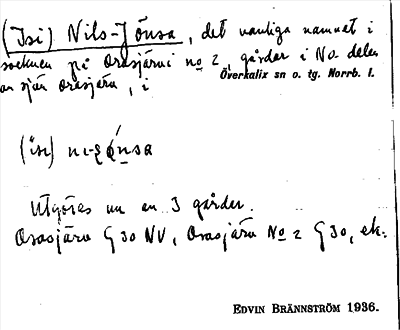 (Isi) Nils-Jönsa, det vanliga namnet i
socknen på Orasjärvi No 2, gårdar i NO. delen
av sjön Orasjärv, i
Överkalix sn o. tg. Norrb. l.
(isi)
Utgöres nu av 3 gårdar.
Orasjärv G 30 NV, Orasjärv No 2 G 30, ek.
EDVIN BRÄNNSTRÖM 1936.